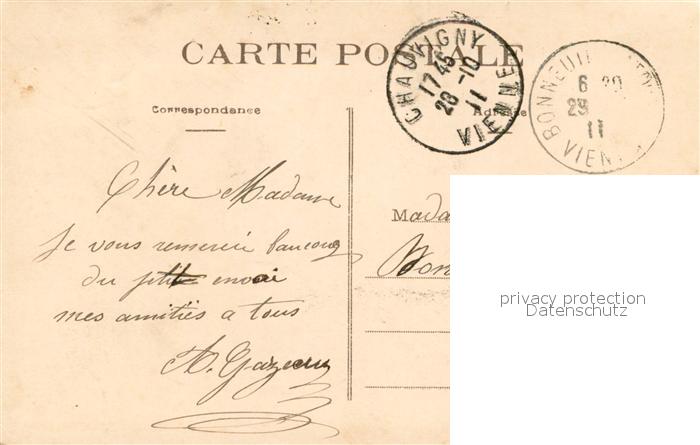 CARTE POSTALE
CHAUVIGNY
17 45
28 -10
11
VIENNE
BONNEUIL
6
29
11
VIENNE
Correspondance
Adresse
Chère Madame
je vous remercie baucoup
du petit envoi
mes amitiés a tous
Mada
Bon
privacy protection
Datenschutz